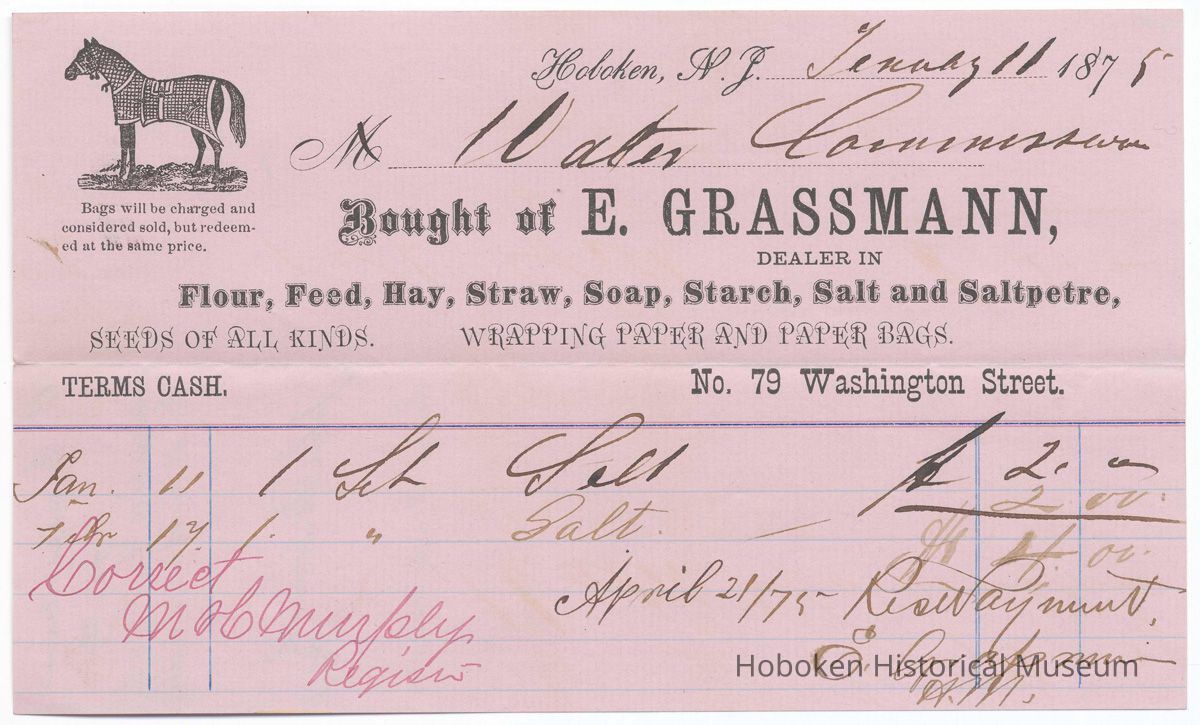 Hoboken, N. J. Jenuary 11 1875
M Water Commissioner
Bags will be charged and
considered sold, but redeem-
ed at the same price.
Bought of E. GRASSMANN,
DEALER IN
Flour, Feed, Hay, Straw, Soap, Starch, Salt and Saltpetre,
SEEDS OF ALL KINDS. WRAPPING PAPER AND PAPER BAGS.
TERMS CASH. No. 79 Washington Street.
Jan. 11 1 Salt $ 2. 00
Febr 17. 1. " Salt. 2 00.
$ 4 00.
Correct
M H Murphy
Register
April 21/75 Recd Payment,
E. Grassmann
Hoboken Historical Museum